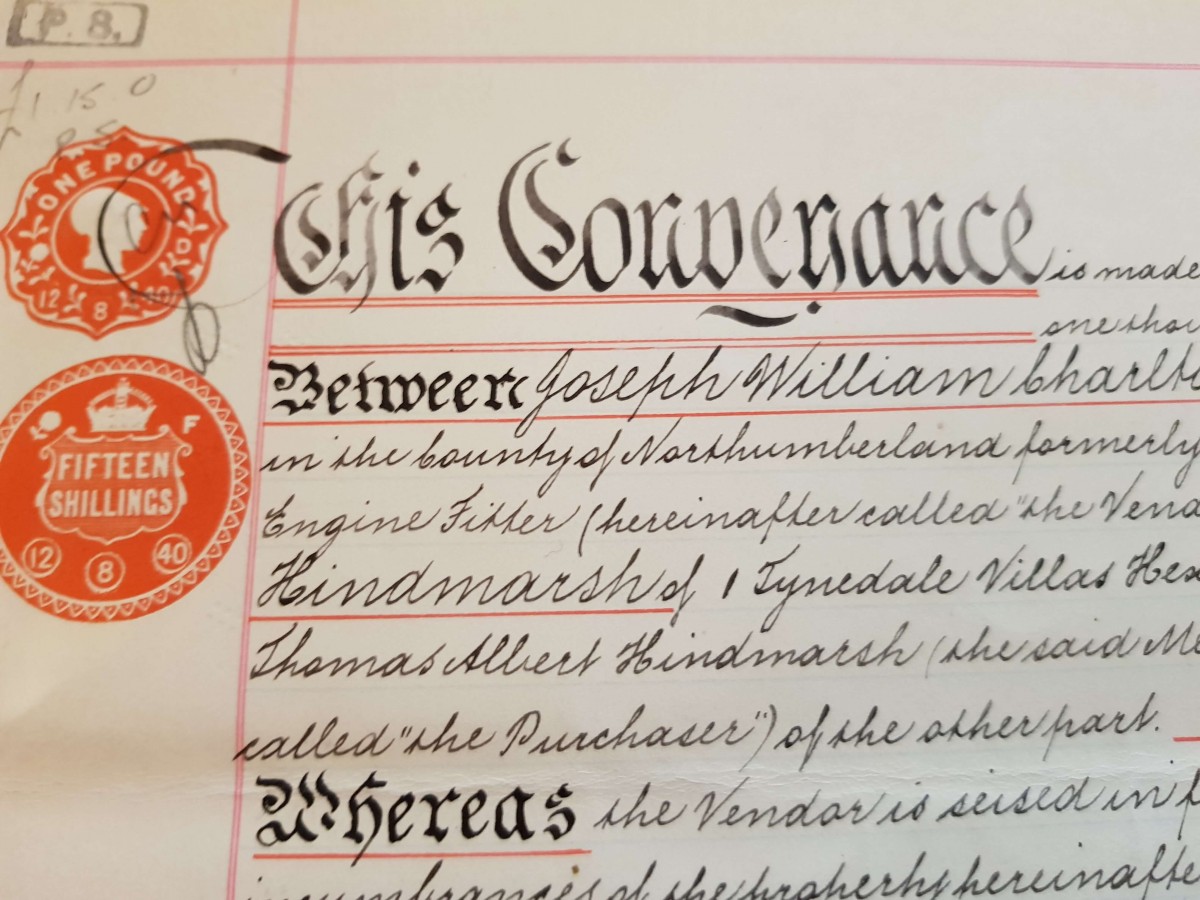 P. 8.
£1 15 0
ONE POUND
D
12 8 40
This Conveyance is made
one thou
Between Joseph William Charlto
F
FIFTEEN
SHILLINGS
12 8 40
in the County of Northumberland formerly
Engine Fitter (hereinafter called "the Vend
Hindmarsh of 1 Tynedale Villas Hex
Thomas Albert Hindmarsh (the said M
called "the Purchaser") of the other part.
Whereas the Vendor is seised in f
incumbrances of the property hereinafte